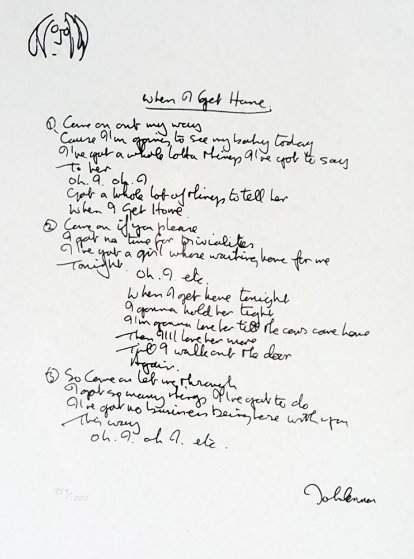 When I Get Home
① Come on out my way
Cause I'm going to see my baby today
I've got a whole lotta things I've got to say
To her
oh. I. oh. I
Got a whole lot of things to tell her
When I Get Home
② Come on if you please
I got no time for trivialities
I've got a girl whose waiting home for me
Tonight.
oh. I. etc.
When I get home tonight
I gonna hold her tight
I'm gonna love her till the cows come home
Then I'll love her more
Till I walk out the door
Again.
③ So Come on let me through
I got so many things I've got to do
I've got no business being here with you
This way
oh. I. oh I. etc.
/1000
John Lennon